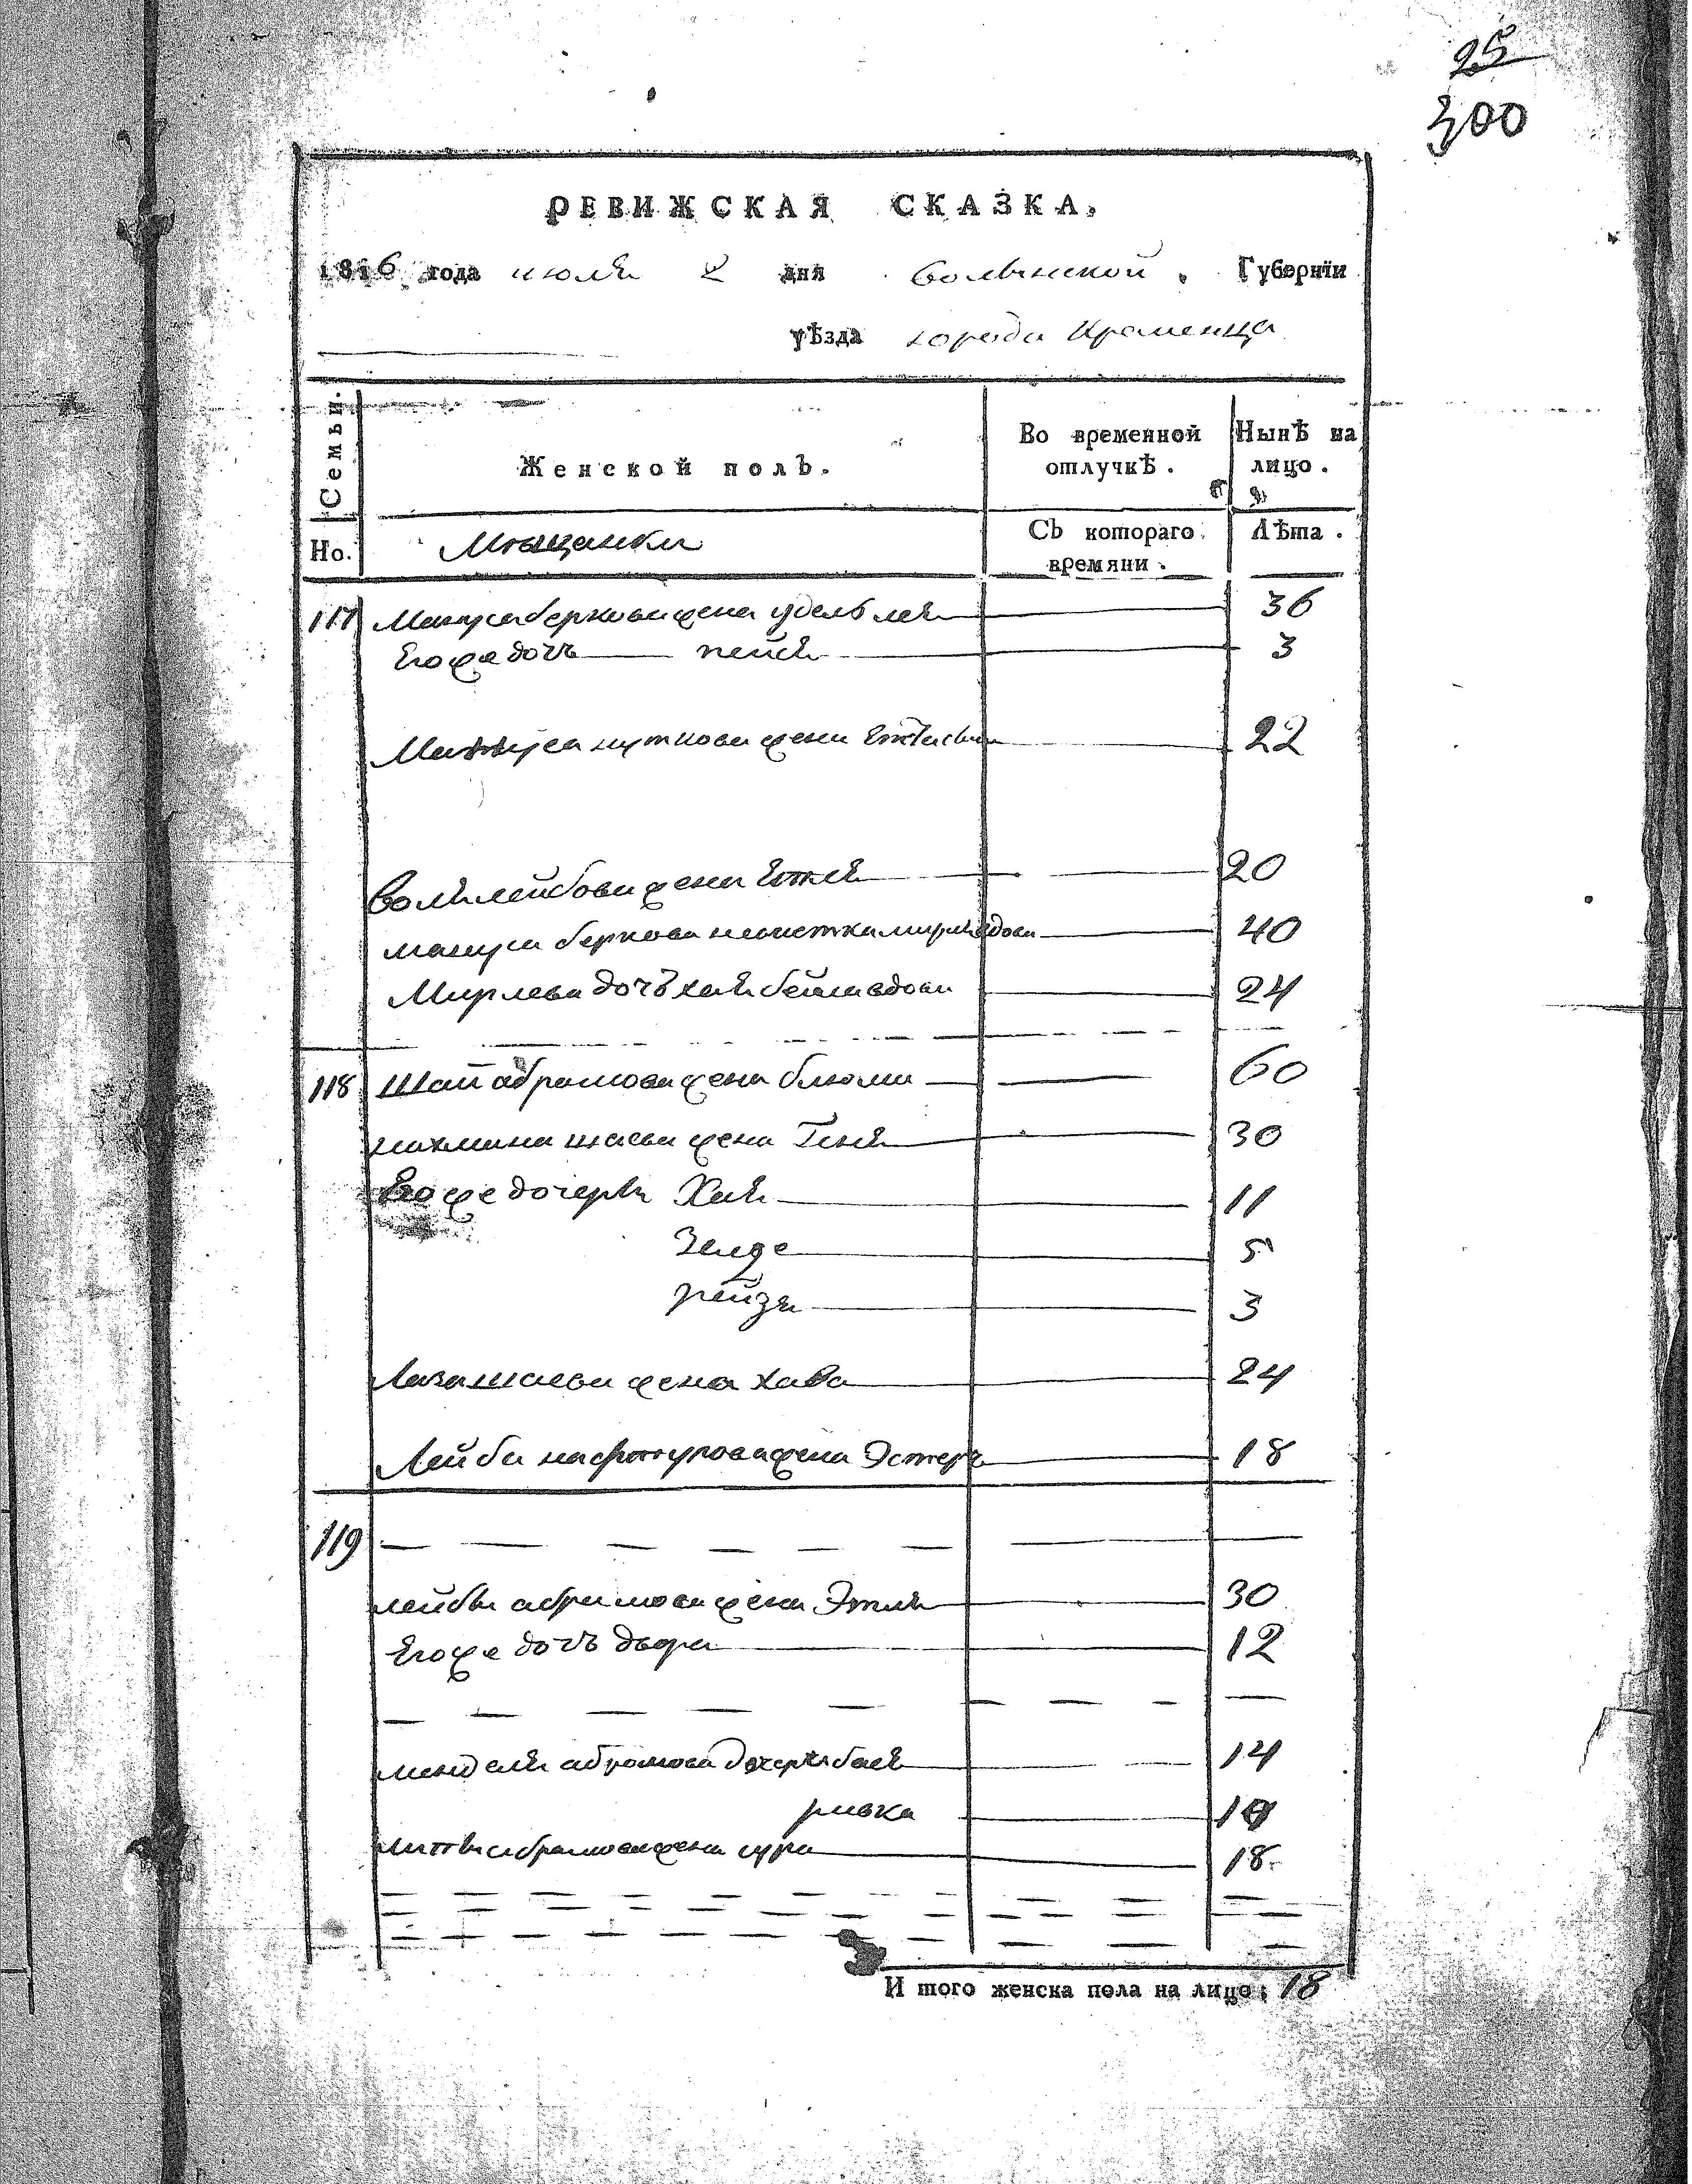 25
300
РЕВИЖСКАЯ СКАЗКА.
1816 года июля 2 дня волынской Губернїи
уѣзда города Кременца
Семьи.
Женской полъ.
Во временной отлучкѣ.
Нынѣ на лицо.
Но.
Мещанки
Съ котораго времяни.
Лѣта.
117 Мануса беркова жена удель лея 36
Его же дочь пейся 3
нуткова жена 22
Воля лейбова жена 20
мануса беркова вдова 40
Мирлева дочь хая бейла вдова 24
118 Шаи абрамова жена блюма 60
нахмана шаева жена Геня 30
Его же дочеря Хая 11
Зелде 5
рейзя 3
Лаза шаева жена хава 24
Лейби жена Эстеръ 18
119
лейбы абрамова жена Этля 30
Его же дочь двора 12
менделя абрамова дочеря бася 14
ривка
абрамова жена сура 18
И того женска пола на лицо: 18